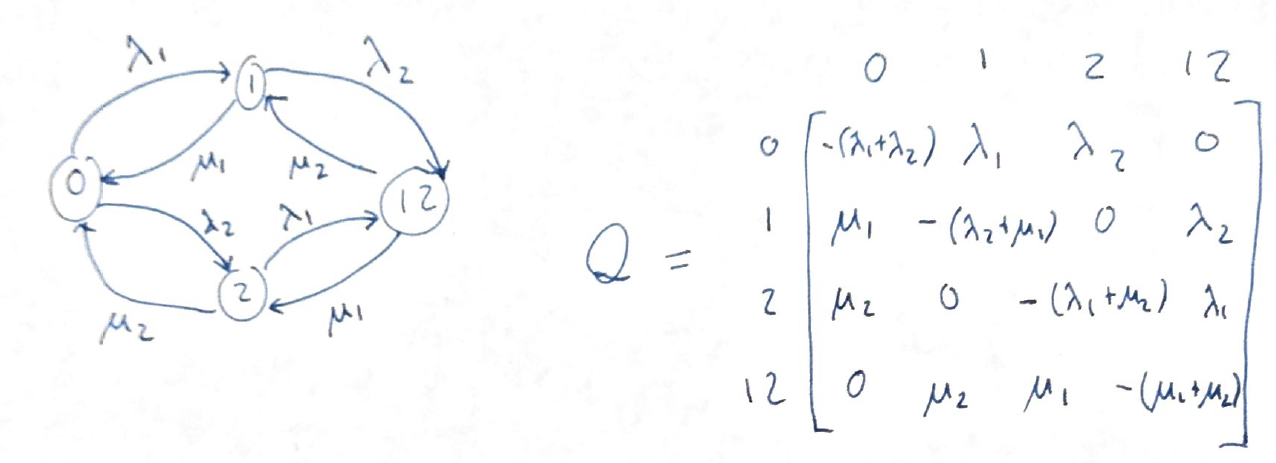 λ₁ 1 λ₂
0 μ₁ μ₂ 12
λ₂ λ₁
2
μ₂ μ₁
0 1 2 12
0 -(λ₁+λ₂) λ₁ λ₂ 0
1 μ₁ -(λ₂+μ₁) 0 λ₂
Q =
2 μ₂ 0 -(λ₁+μ₂) λ₁
12 0 μ₂ μ₁ -(μ₁+μ₂)